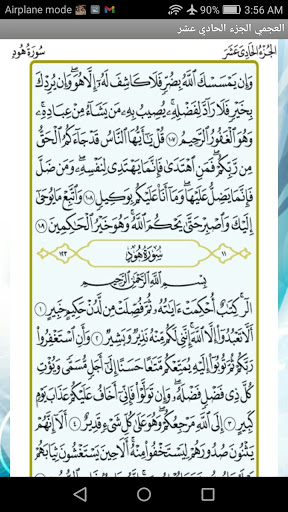 Airplane mode 3:56 AM
العجمي الجزء الحادي عشر
الجُزْءُ الحَادِى عَشَرَ سُورَةُ هُودٍ
وَإِن يَمْسَسْكَ ٱللَّهُ بِضُرٍّ فَلَا كَاشِفَ لَهُۥٓ إِلَّا هُوَۖ وَإِن يُرِدْكَ
بِخَيْرٍ فَلَا رَآدَّ لِفَضْلِهِۦۚ يُصِيبُ بِهِۦ مَن يَشَآءُ مِنْ عِبَادِهِۦۚ
وَهُوَ ٱلْغَفُورُ ٱلرَّحِيمُ ١٠٧ قُلْ يَٰٓأَيُّهَا ٱلنَّاسُ قَدْ جَآءَكُمُ ٱلْحَقُّ
مِن رَّبِّكُمْۖ فَمَنِ ٱهْتَدَىٰ فَإِنَّمَا يَهْتَدِى لِنَفْسِهِۦۖ وَمَن
ضَلَّ فَإِنَّمَا يَضِلُّ عَلَيْهَاۖ وَمَآ أَنَا۠ عَلَيْكُم بِوَكِيلٍ ١٠٨ وَٱتَّبِعْ مَا يُوحَىٰٓ
إِلَيْكَ وَٱصْبِرْ حَتَّىٰ يَحْكُمَ ٱللَّهُۚ وَهُوَ خَيْرُ ٱلْحَٰكِمِينَ ١٠٩
١١ سُورَةُ هُودٍ ١٢٣
بِسْمِ ٱللَّهِ ٱلرَّحْمَٰنِ ٱلرَّحِيمِ
الٓرۚ كِتَٰبٌ أُحْكِمَتْ ءَايَٰتُهُۥ ثُمَّ فُصِّلَتْ مِن لَّدُنْ حَكِيمٍ خَبِيرٍ ١
أَلَّا تَعْبُدُوٓا۟ إِلَّا ٱللَّهَۚ إِنَّنِى لَكُم مِّنْهُ نَذِيرٌ وَبَشِيرٌ ٢ وَأَنِ ٱسْتَغْفِرُوا۟
رَبَّكُمْ ثُمَّ تُوبُوٓا۟ إِلَيْهِ يُمَتِّعْكُم مَّتَٰعًا حَسَنًا إِلَىٰٓ أَجَلٍ مُّسَمًّى وَيُؤْتِ
كُلَّ ذِى فَضْلٍ فَضْلَهُۥۖ وَإِن تَوَلَّوْا۟ فَإِنِّىٓ أَخَافُ عَلَيْكُمْ عَذَابَ يَوْمٍ
كَبِيرٍ ٣ إِلَى ٱللَّهِ مَرْجِعُكُمْۖ وَهُوَ عَلَىٰ كُلِّ شَىْءٍ قَدِيرٌ ٤ أَلَآ إِنَّهُمْ
يَثْنُونَ صُدُورَهُمْ لِيَسْتَخْفُوا۟ مِنْهُۚ أَلَا حِينَ يَسْتَغْشُونَ ثِيَابَهُمْ